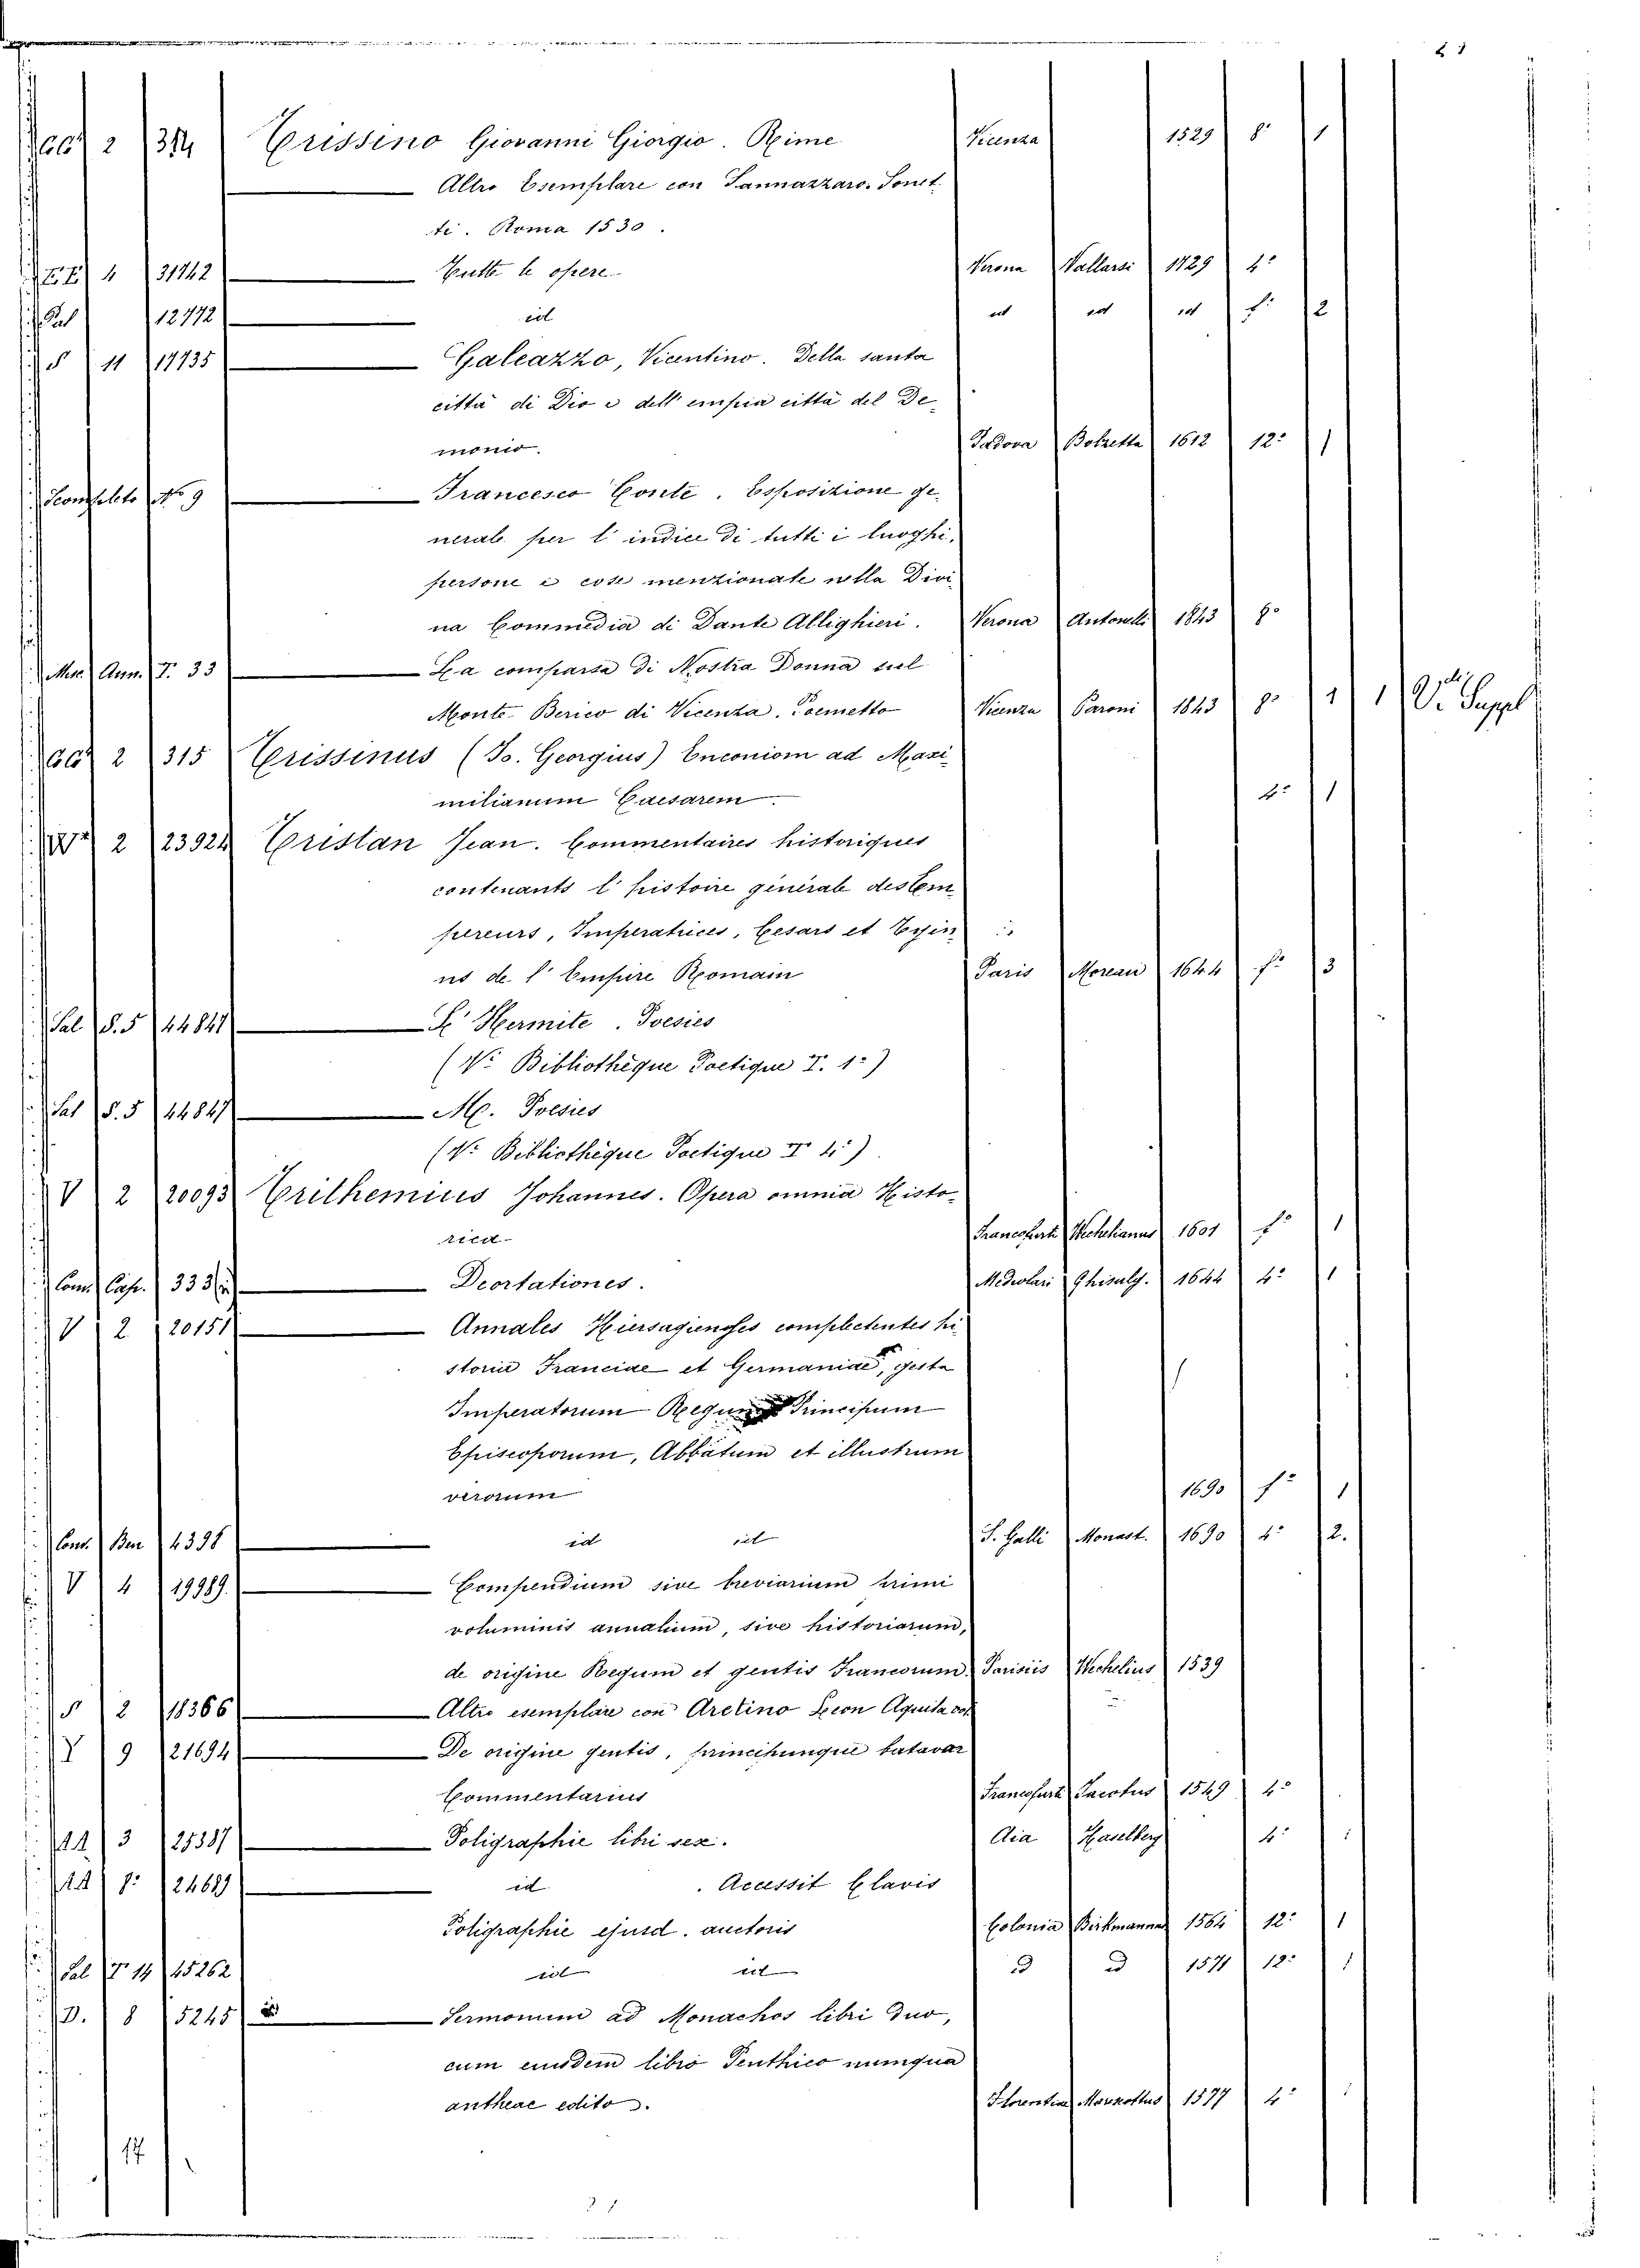 2 314 Trissino Giovanni Giorgio. Rime Vicenza 1529 8° 1
Altro Esemplare con Sannazzaro. Sonet
ti. Roma 1530.
4 31742 Tutte le opere Verona Vallarsi 1729 4°
Sal 12772 id id id id f° 2
S 11 17735 Galeazzo, Vicentino. Della santa
città di Dio e dell' empia città del De
monio. Padova Bolzetta 1612 12° 1
Scompleto No 9 Francesco Conte. Esposizione ge
nerale per l' indice di tutti i luoghi,
persone e cose menzionate nella Divi
na Commedia di Dante Allighieri. Verona Antonelli 1843 8°
Misc. Ann. T. 33 La comparsa di Nostra Donna sul
Monte Berico di Vicenza. Poemetto Vicenza Paroni 1843 8° 1 1 Vi Suppl
2 315 Trissinus (Jo. Georgius) Enconiom ad Maxi
milianum Caesarem. 4° 1
2 23924 Tristan Jean. Commentaires historiques
contenants l' histoire générale des Em
pereurs, Imperatrices, Cesars et Tyin
ns de l' Empire Romain Paris Moreau 1644 f° 3
Sal S. 5 44847 L' Hermite. Poesies
(Vi Bibliothèque Poetique T. 1°)
Sal S. 5 44847 M. Poesies
(Vi Bibliothèque Poetique T 4°).
V 2 20093 Trithemius Johannes. Opera omnia Histo
rica Francofurti Wechelianus 1601 f° 1
Com. Cap. 333 Deortationes. Mediolani Ghisulf. 1644 4° 1
V 2 20151 Annales Hiersagienses complectentes hi
storia Franciae et Germaniae, gesta
Imperatorum Regum Principum
Episcoporum, Abbatum et illustrum
virorum 1690 f° 1
Com. Ben 4398 id id S. Galli Monast. 1690 4° 2.
V 4 19989. Compendium sive breviarium primi
voluminis annalium, sive historiarum,
de origine Regum et gentis Francorum Parisiis Wechelius 1539
S 2 18366 Altro esemplare con Aretino Leon Aquila vol
Y 9 21694 De origine gentis, principumque batavar
Commentarius Francofurti Jacobus 1549 4°
3 25387 Poligraphie libri sex. Aia Haselberg 4° 1
8° 24689 id. Accessit Clavis
Poligraphie ejusd. auctoris Colonia Birkmannus 1564 12° 1
Sal T 14 45262 id id D D 1571 12° 1
D. 8 5245 Sermonum ad Monachos libri duo,
cum eiusdem libro Penthico numqua
antheac edito. Florentiae Mareschottus 1577 4° 1
17